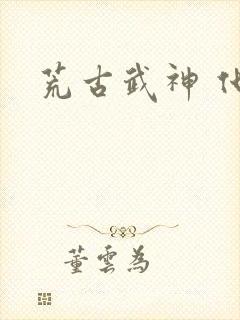 荒古武神
董云為